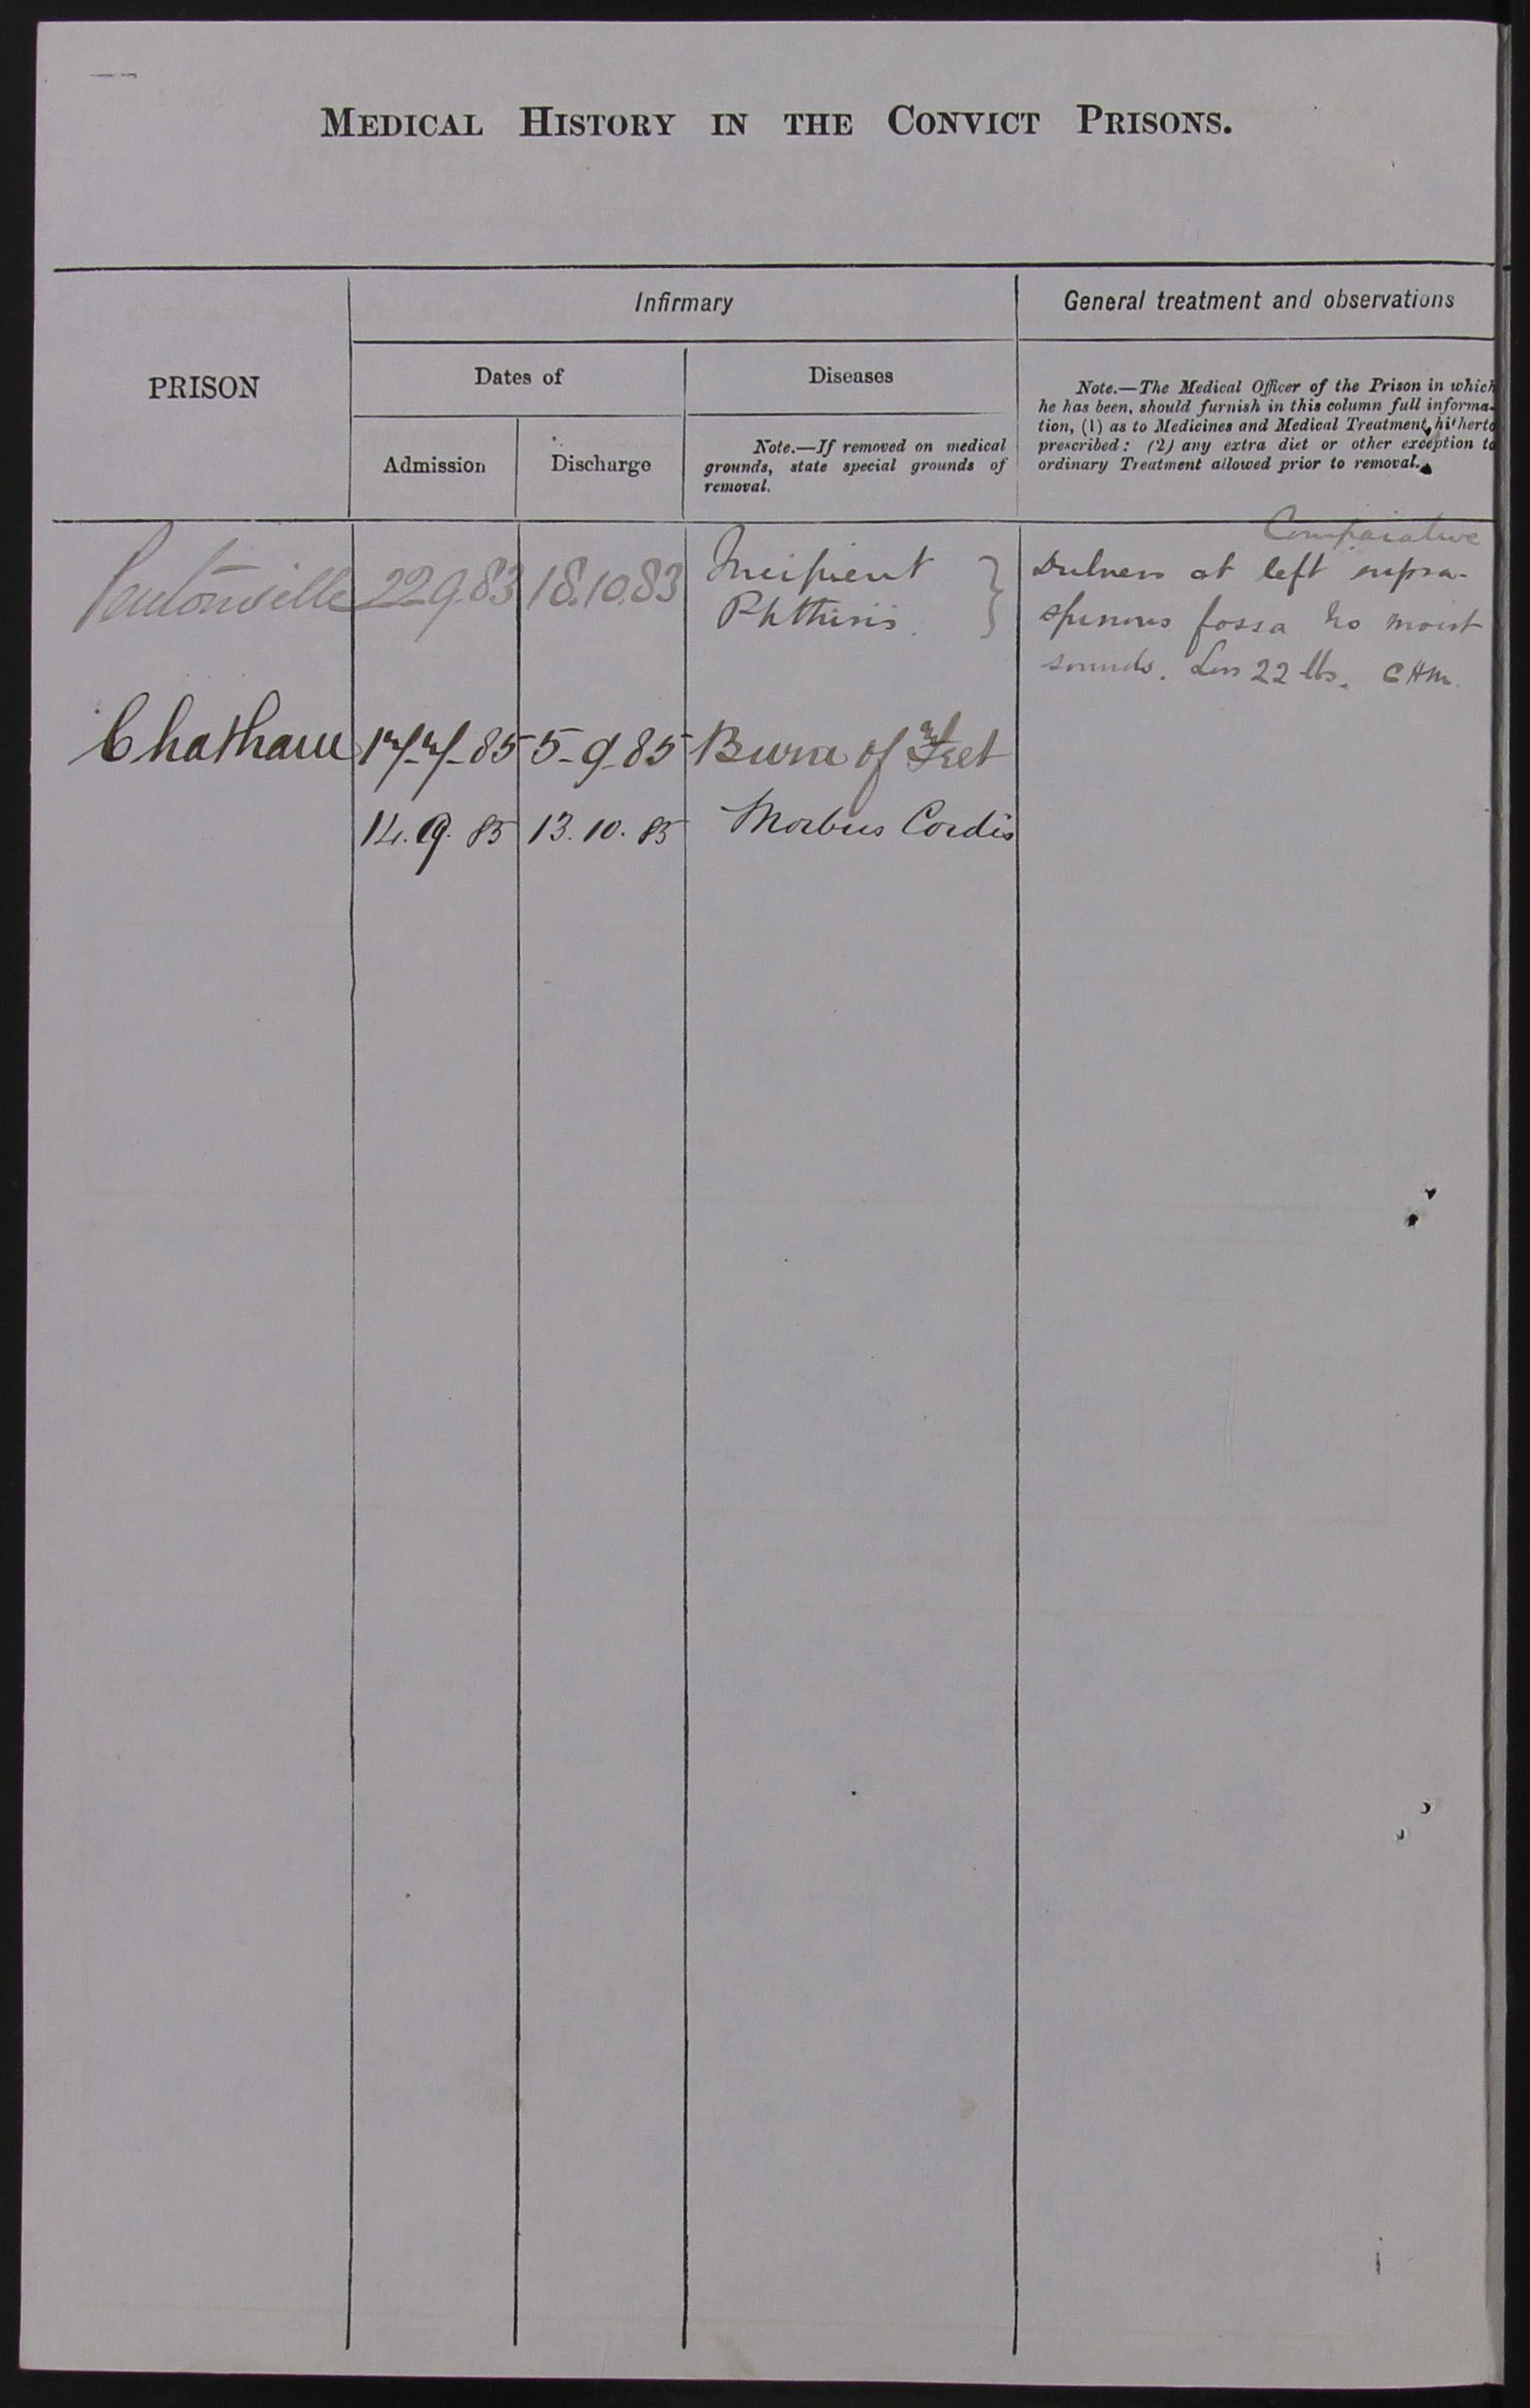 MEDICAL HISTORY IN THE CONVICT PRISONS.
PRISON
Infirmary
General treatment and observations
Dates of
Diseases
Admission
Discharge
Note.—If removed on medical
grounds, state special grounds of
removal.
Note.—The Medical Officer of the Prison in which
he has been, should furnish in this column full informa-
tion, (1) as to Medicines and Medical Treatment, hitherto
prescribed: (2) any extra diet or other exception to
ordinary Treatment allowed prior to removal.
Pentonville 22.9.83 18.10.83 Incipient
Phthisis.
Comparative
Dulness at left supra-
spinous fossa no moist
sounds. Loss 22 lbs. CHM.
Chatham 17-7-85 5-9-85 Burn of Feet
14.9.85 13.10.85 Morbus Cordis